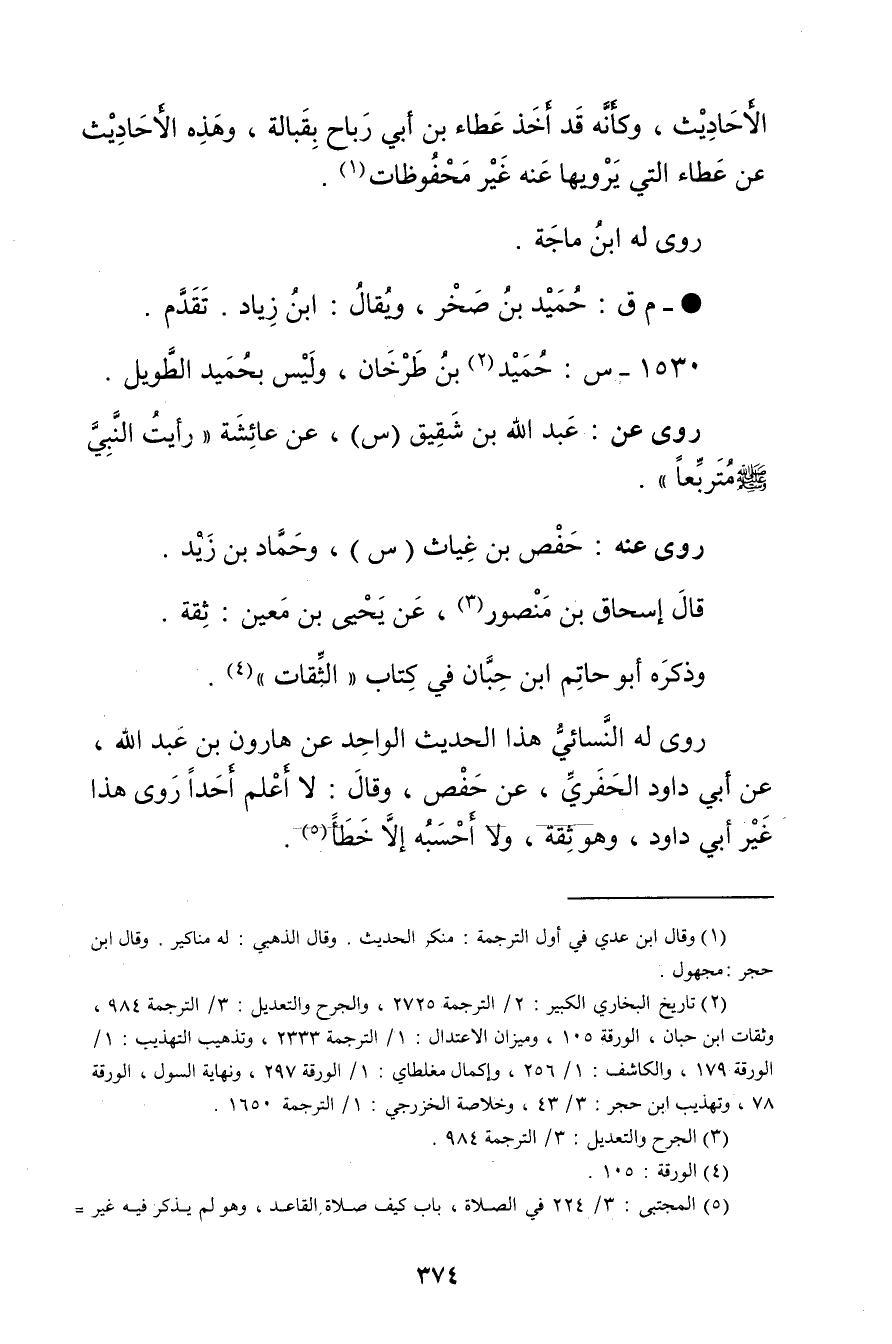 الأَحَادِيْث ، وكأَنَّه قَد أَخَذ عَطاء بن أبي رَباح بِقَبالة ، وهَذِه الأَحَادِيْث
عن عَطاء التي يَرْويها عَنه غَيْر مَحْفُوظات(١) .
روى له ابنُ ماجَة .
● ـ م ق : حُمَيْد بنُ صَخْر ، ويُقالُ : ابنُ زِياد . تَقَدَّم .
١٥٣٠ ـ س : حُمَيْد(٢) بنُ طَرْخَان ، ولَيْس بحُمَيد الطَّويل .
روى عن : عَبد الله بن شَقِيق (س) ، عن عائِشَة « رأيتُ النَّبِيَّ
ﷺ مُتَربِّعاً » .
روى عنه : حَفْص بن غِياث ( س ) ، وحَمَّاد بن زَيْد .
قالَ إسحاق بن مَنْصور(٣) ، عَن يَحْيى بن مَعين : ثِقة .
وذكرَه أبو حاتِم ابن حِبَّان في كِتاب « الثِّقات »(٤) .
روى له النَّسائيُّ هذا الحديث الواحِد عن هارون بن عَبد الله ،
عن أبي داود الحَفَريِّ ، عن حَفْص ، وقالَ : لا أَعْلم أَحَداً رَوى هذا
غَيْر أبي داود ، وهو ثِقة ، ولا أَحْسَبُه إلاَّ خَطَأً(٥) .
(١) وقال ابن عدي في أول الترجمة : منكر الحديث . وقال الذهبي : له مناكير . وقال ابن
حجر : مجهول .
(٢) تاريخ البخاري الكبير : ٢/ الترجمة ٢٧٢٥ ، والجرح والتعديل : ٣/ الترجمة ٩٨٤ ،
وثقات ابن حبان ، الورقة ١٠٥ ، وميزان الاعتدال : ١/ الترجمة ٢٣٣٣ ، وتذهيب التهذيب : ١/
الورقة ١٧٩ ، والكاشف : ١/ ٢٥٦ ، وإكمال مغلطاي : ١/ الورقة ٢٩٧ ، ونهاية السول ، الورقة
٧٨ ، وتهذيب ابن حجر : ٣/ ٤٣ ، وخلاصة الخزرجي : ١/ الترجمة ١٦٥٠ .
(٣) الجرح والتعديل : ٣/ الترجمة ٩٨٤ .
(٤) الورقة : ١٠٥ .
(٥) المجتبى : ٣/ ٢٢٤ في الصلاة ، باب كيف صلاة القاعد ، وهو لم يذكر فيه غير =
٣٧٤